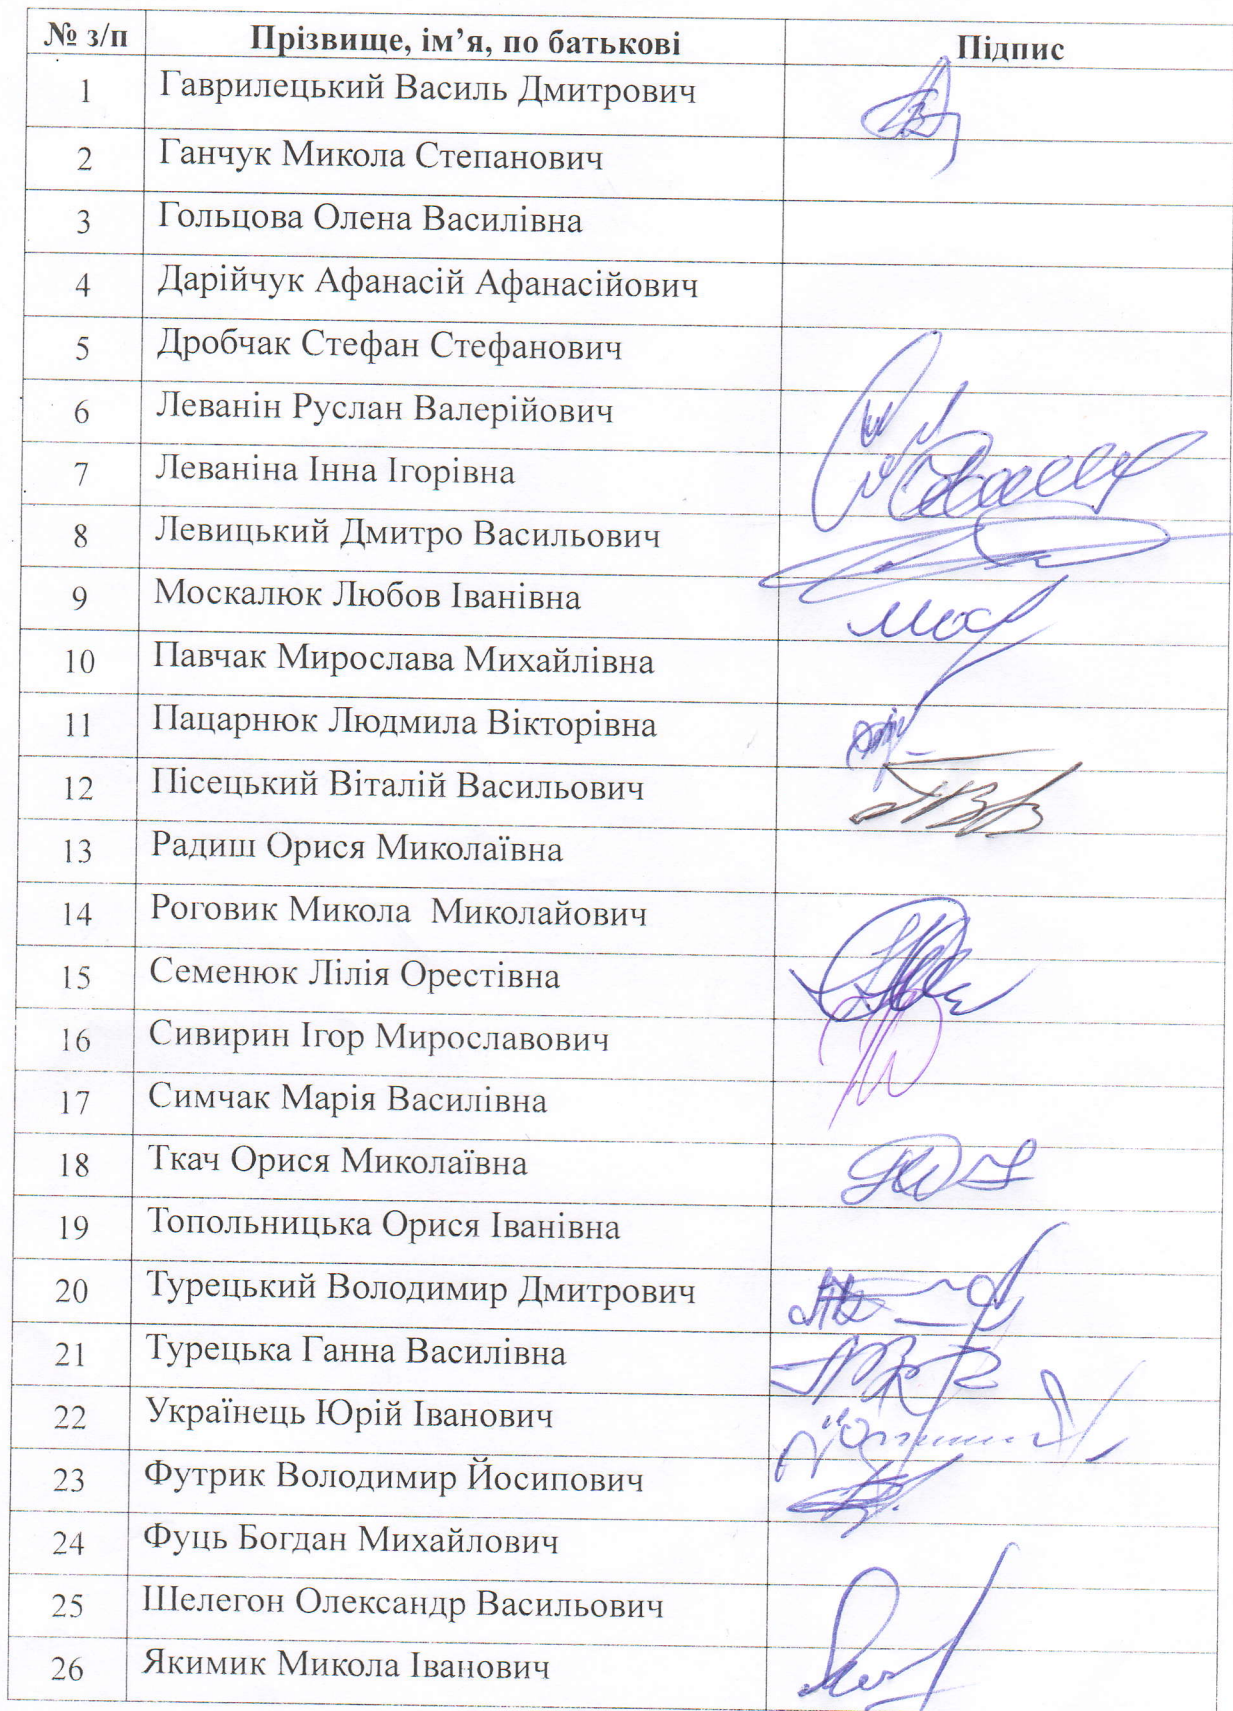 № з/п Прізвище, ім’я, по батькові Підпис
1 Гаврилецький Василь Дмитрович
2 Ганчук Микола Степанович
3 Гольцова Олена Василівна
4 Дарійчук Афанасій Афанасійович
5 Дробчак Стефан Стефанович
6 Леванін Руслан Валерійович
7 Леваніна Інна Ігорівна
8 Левицький Дмитро Васильович
9 Москалюк Любов Іванівна
10 Павчак Мирослава Михайлівна
11 Пацарнюк Людмила Вікторівна
12 Пісецький Віталій Васильович
13 Радиш Орися Миколаївна
14 Роговик Микола Миколайович
15 Семенюк Лілія Орестівна
16 Сивирин Ігор Мирославович
17 Симчак Марія Василівна
18 Ткач Орися Миколаївна
19 Топольницька Орися Іванівна
20 Турецький Володимир Дмитрович
21 Турецька Ганна Василівна
22 Українець Юрій Іванович
23 Футрик Володимир Йосипович
24 Фуць Богдан Михайлович
25 Шелегон Олександр Васильович
26 Якимик Микола Іванович